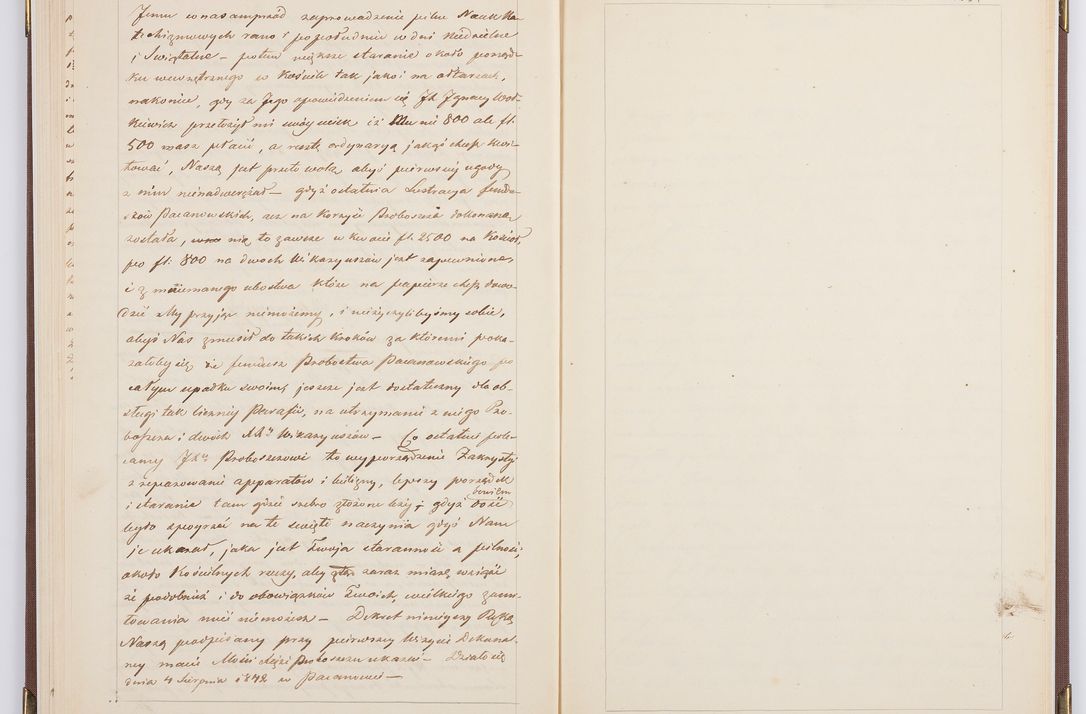 Jemu w nasamprzód zaprowadzenie pilne Nauk Ka-
techizmowych rano i popołudniu w dni Niedzielne
i Świątalne – potem większe staranie około porząd-
ku wewnętrznego w Kościele tak jako i na ołtarzach,
nakoniec, gdy za Jego opowiedzeniem się JX Ignacy
przełożył mi iż Mu nie 800 ale fl.
500 masz płacić, a resztę ordynaryą jakąś chcesz
, Naszą jest przeto wolą abyś pierwszej ugody
z nim nienadwerężał – gdyż ostatnia Lustracya fundu-
szów Pacanowskich, acz na korzyść Proboszcza dokonana
została, nią to zawsze w kwocie fl. 2500 na Kościół,
po fl: 800 na dwóch Wikaryuszów jest zapewnione,
i z mniemanego ubóstwa które na papierze chcesz dowo-
dzić My przyjąć niemożemy, i nieżyczylibyśmy sobie,
abyś Nas zmusił do takich kroków za któremi poka-
załoby się, że fundusz Probostwa Pacanowskiego po
całym upadku swoim, jeszcze jest dostateczny dla ob-
sługi tak licznej Parafii, na utrzymanie z niego Pro-
boszcza i dwóch Wikaryuszów – Co ostatnie pole-
camy JXu Proboszczowi to wyporządzenie Zakrystyi
z reparowaniem apparatów i bielizny, lepszy porządek
i staranie tam gdzie srebro złożone leży; gdyż dość
bowiem
było spojrzeć na te święte naczynia gdyś Nam
je ukazał, jaka jest Twoja staranność a pilność
około Kościelnych rzeczy, aby zaraz miarę wziąść
że podobnież i do obowiązków Twoich, wielkiego zami-
łowania mieć niemożesz – Dekret niniejszy Ręką
Naszą podpisany przy pierwszej Wizycie Dekana-
nej macie Mości Xięże Proboszczu ukazać – Działo się
dnia 4 Sierpnia 1842 w Pacanowie –